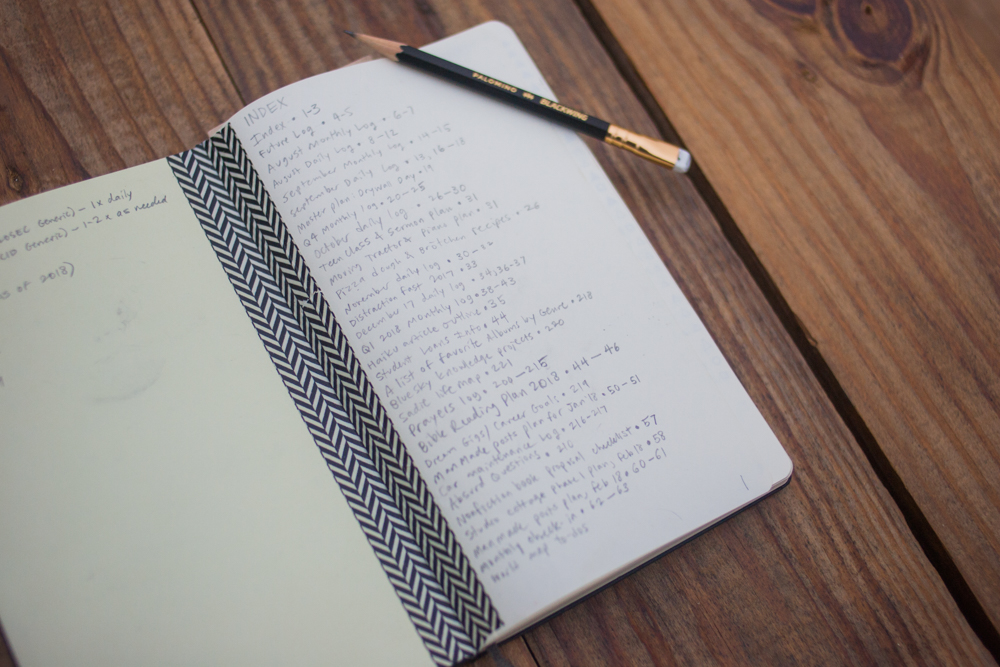 Generic) – 1x daily
Generic) – 1-2x as needed
of 2018)
INDEX
Index • 1-3
Future Log • 4-5
August Monthly Log • 6-7
August Daily Log • 8-12
September Monthly log • 14-15
September Daily Log • 13, 16-18
Master Plan Day • 19
Q4 Monthly log • 20-25
October daily log • 26-30
Teen Class & Sermon plan • 31
Moving Tractor & Piano plan • 31
Pizza dough & recipes •
November daily log • 30-32
Distraction Fast 2017 • 33
December 17 daily log • 34, 36-37
Q1 2018 Monthly log • 38-43
Haiku article outline • 35
Student Loans Info • 44
A list of Favorite Albums by Genre • 218
Blue Sky Knowledge projects • 220
Sadie life map • 221
Prayers log • 200-215
Bible Reading Plan 2018 • 44-46
Dream Gigs/Career Goals • 219
Manmade posts plan for Jan 18 • 50-51
Car maintenance Log • 216-217
Absurd Questions • 210
Nonfiction book proposal checklist • 57
Studio cottage phase 1 plan, Feb 18 • 58
Manmade posts plan, Feb 18 • 60-61
Monthly check in • 62-63
World map to-dos
1
PALOMINO BLACKWING